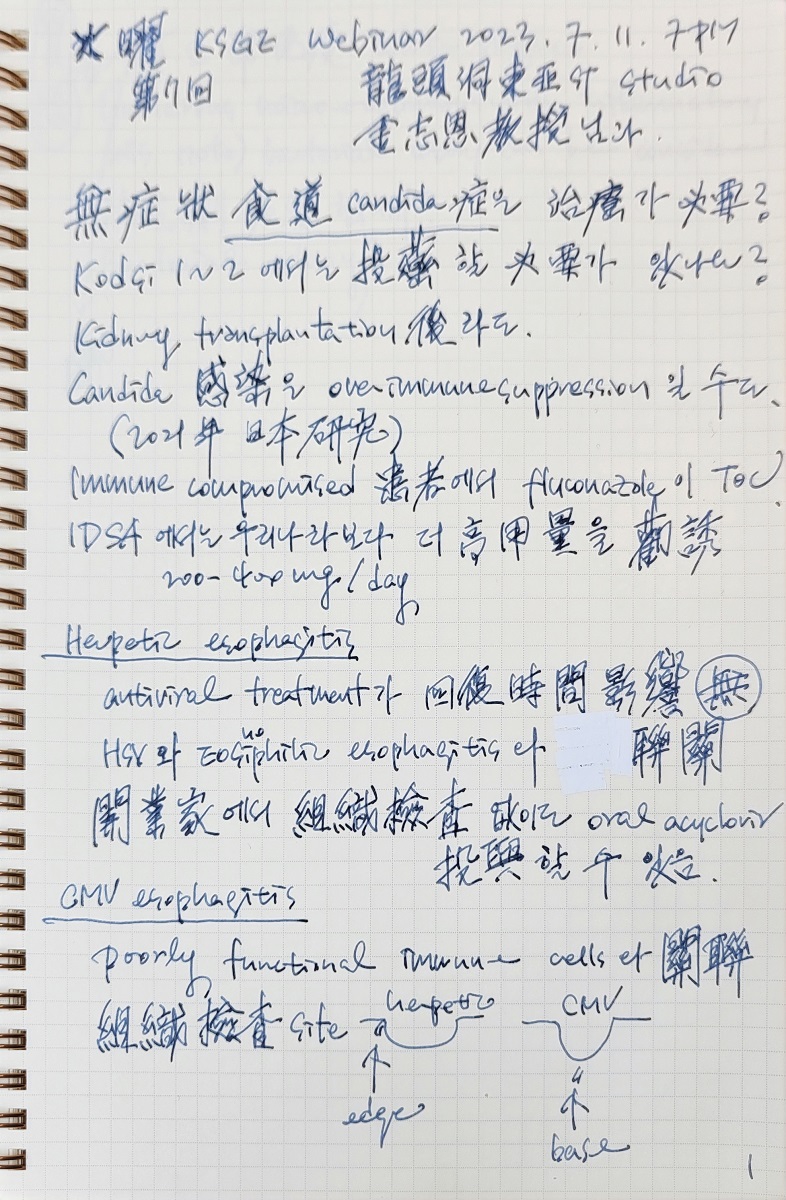 火曜 KSGE Webinar 2023. 7. 11. 7PM
第71回 龍頭洞東亞ST studio
金志恩教授님과.
無症狀 食道 candida症은 治療가 必要?
Kodsi 1~2 에서는 投藥할 必要가 있나요?
Kidney transplantation 後라도.
Candida 感染은 over immune suppression 일 수도.
(2021年 日本研究)
Immune compromised 患者에서 fluconazole이 TOC
IDSA 에서는 우리나라보다 더 高用量을 勸誘
200-400mg/day
Herpetic esophagitis
antiviral treatment가 回復時間 影響 無
HSV와 Eosinophilic esophagitis와 聯關
開業家에서 組織檢査 없이도 oral acyclovir
投與할 수 있음.
CMV esophagitis
poorly functional immune cells와 關聯
組織檢査 site herpetic CMV
edge base
1